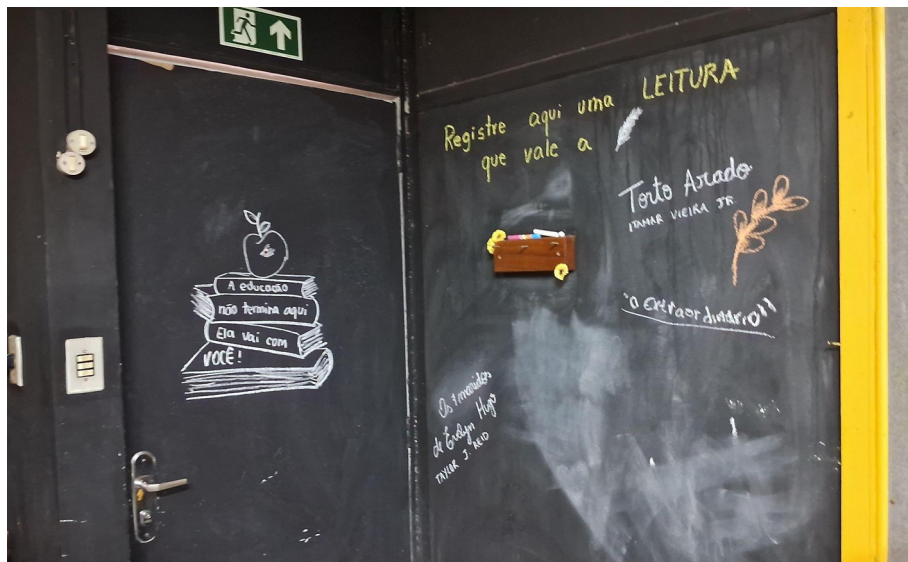 A educação
não termina aqui
Ela vai com
VOCÊ!
Registre aqui uma LEITURA
que vale a
Torto Arado
ITAMAR VIEIRA JR.
"o extraordinário"
Os 7 maridos
de Evelyn Hugo
TAYLOR J. REID